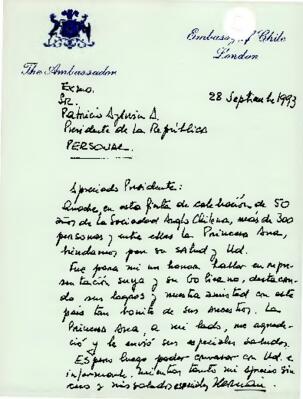 Embassy of Chile
London
The Ambassador
28 Septiembre 1993
Exmo.
Sr.
Patricio Aylwin A.
Presidente de la República
PERSONAL
Apreciado Presidente:
Anoche, en esta fiesta de celebración de 50
años de la Sociedad Anglo Chilena, más de 300
personas y entre ellas la Princesa Ana,
brindamos por su salud y Ud.
Fue para mi un honor hablar en repre-
sentación suya y su Gobierno, destacan-
do sus logros y nuestra amistad con este
país tan bonito de sus ancestros. La
Princesa Ana, a mi lado, me agrade-
ció y le envió sus especiales saludos.
Espero luego poder conversar con Ud. e
informarle. Mientras tanto mi aprecio sin-
cero y mis saludos especiales Hernán.